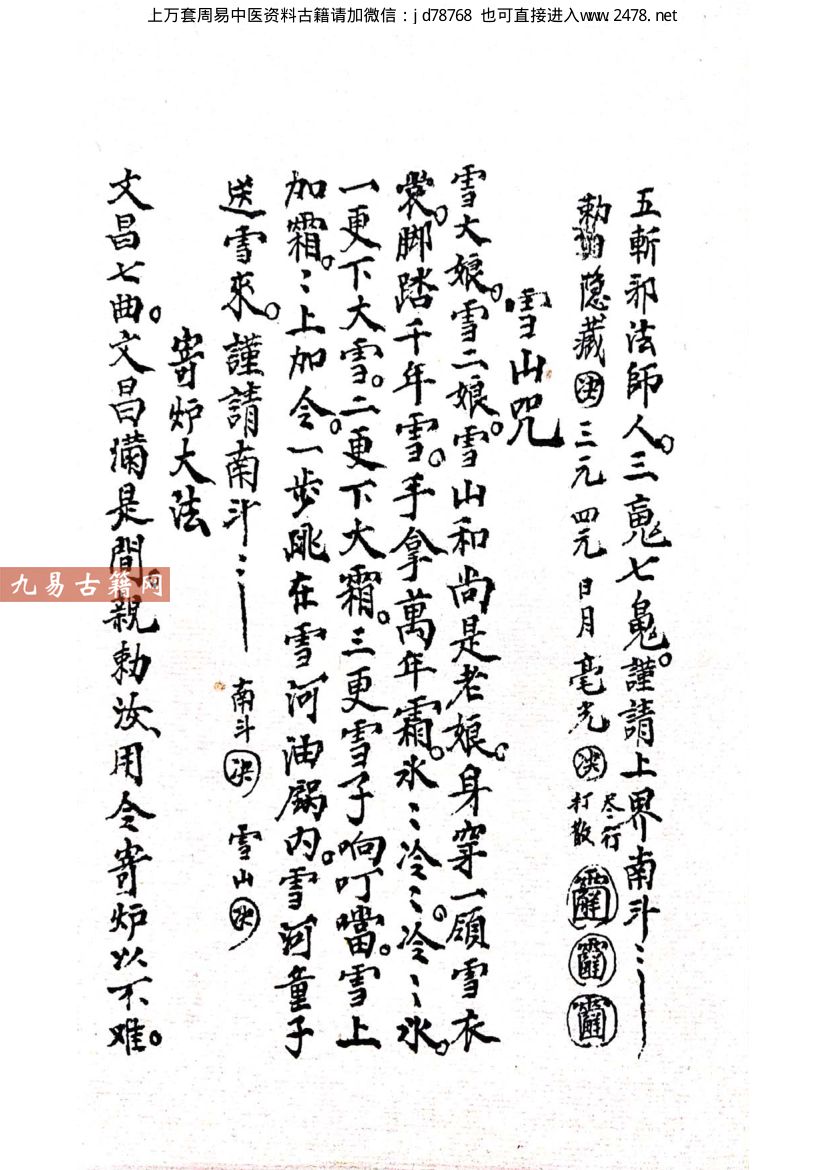 上万套周易中医资料古籍请加微信：jd78768 也可直接进入www.2478.net
五斬邪法師人。三魂七魄。謹請上界南斗：
勅隐藏 决 三元 四元 日月 毫光 决 尽行打散
雪山咒
雪大娘。雪二娘。雪山和尚是老娘。身穿一領雪衣
裳。脚踏千年雪。手拿萬年霜。氷〻冷〻。冷〻氷。
一更下大雪。二更下大霜。三更雪子响叮噹。雪上
加霜。〻上加令。一步跳在雪河油鍋内。雪河童子
送雪來。謹請南斗：
南斗 决 雪山 决
寄炉大法
文昌七曲。文昌滿是間。親勅汝用令寄炉以不难。
九易古籍网